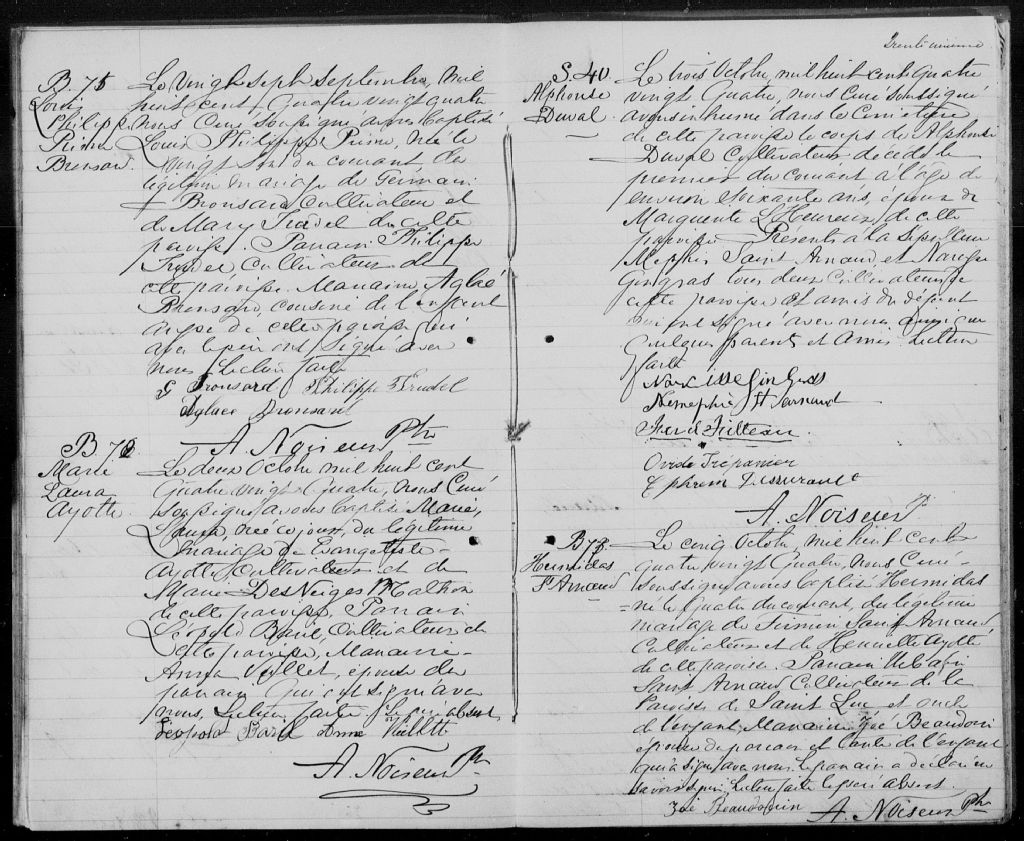 B. 75
Louis
Philippe
Prime
Bronsard.
Le vingt sept septembre, mil
huit cent quatre vingt quatre
nous Curé soussigné avons baptisé
Louis Philippe Prime, née le
vingt six du courant du
légitime mariage de Germain
Bronsard Cultivateur et
de Mary Trudel de cette
paroisse. Parrain Philippe
Trudel, Cultivateur de
cette paroisse. Marraine, Aglaé
Bronsard, cousine de l'enfant
aussi de cette paroisse qui
avec le père ont signé avec
nous. Lecture faite
G Bronsard Philippe Trudel
Aglaee Bronsard
A. Noiseux Ptre
B 72
Marie
Laura
Ayotte.
Le deux Octobre mil huit cent
quatre vingt quatre, nous Curé
soussigné avons baptisé Marie,
Laura, née ce jour, du légitime
mariage de Evangeliste
Ayotte, Cultivateur et de
Marie Des Neiges Mathon
de cette paroisse, Parrain
Léopold Baril, Cultivateur de
cette paroisse, Marraine
Anna Vallet, épouse du
parrain qui ont signé avec
nous, Lecture faite le père absent
Léopold Baril Anna Vallette
A. Noiseux Ptr
Trente unieme
S. 40.
Alphonse
Duval.
Le trois Octobre, mil huit cent quatre
vingt quatre, nous Curé soussigné
avons inhumé dans le Cimetière
de cette paroisse le corps de Alphonse
Duval Cultivateur décédé le
premier du courant à l'age de
environ soixante ans, époux de
Marguerite L'Heureux de cette
paroisse Présents à la sépulture
Saint Arnaud et Narcisse
Gingras tous deux Cultivateurs de
cette paroisse et amis du défunt
qui ont signé avec nous ainsi que
quelques parents et amis. Lecture
faite
Narcisse Gingras
Nemephie St Arnaud
Ovide Trépanier
Ephrem
A. Noiseux P.
B 73.
Hermidas
St Arnaud
Le cinq Octobre, mil huit cent
quatre vingt quatre, nous Curé
soussigné avons baptisé Hermidas
né le quatre du courant, du légitime
mariage de Firmin Saint Arnaud
Cultivateur et de Henriette Ayotte
de cette paroisse. Parrain
Saint Arnaud Cultivateur de la
Paroisse de Saint Luc et oncle
de l'enfant, Marraine Zoé Beaudoin
épouse du parrain et tante de l'enfant
qui a signé avec nous. Le parrain a déclaré ne
savoir signer. Lecture faite le père absent
Zoé Beaudouin A. Noiseux Ptre